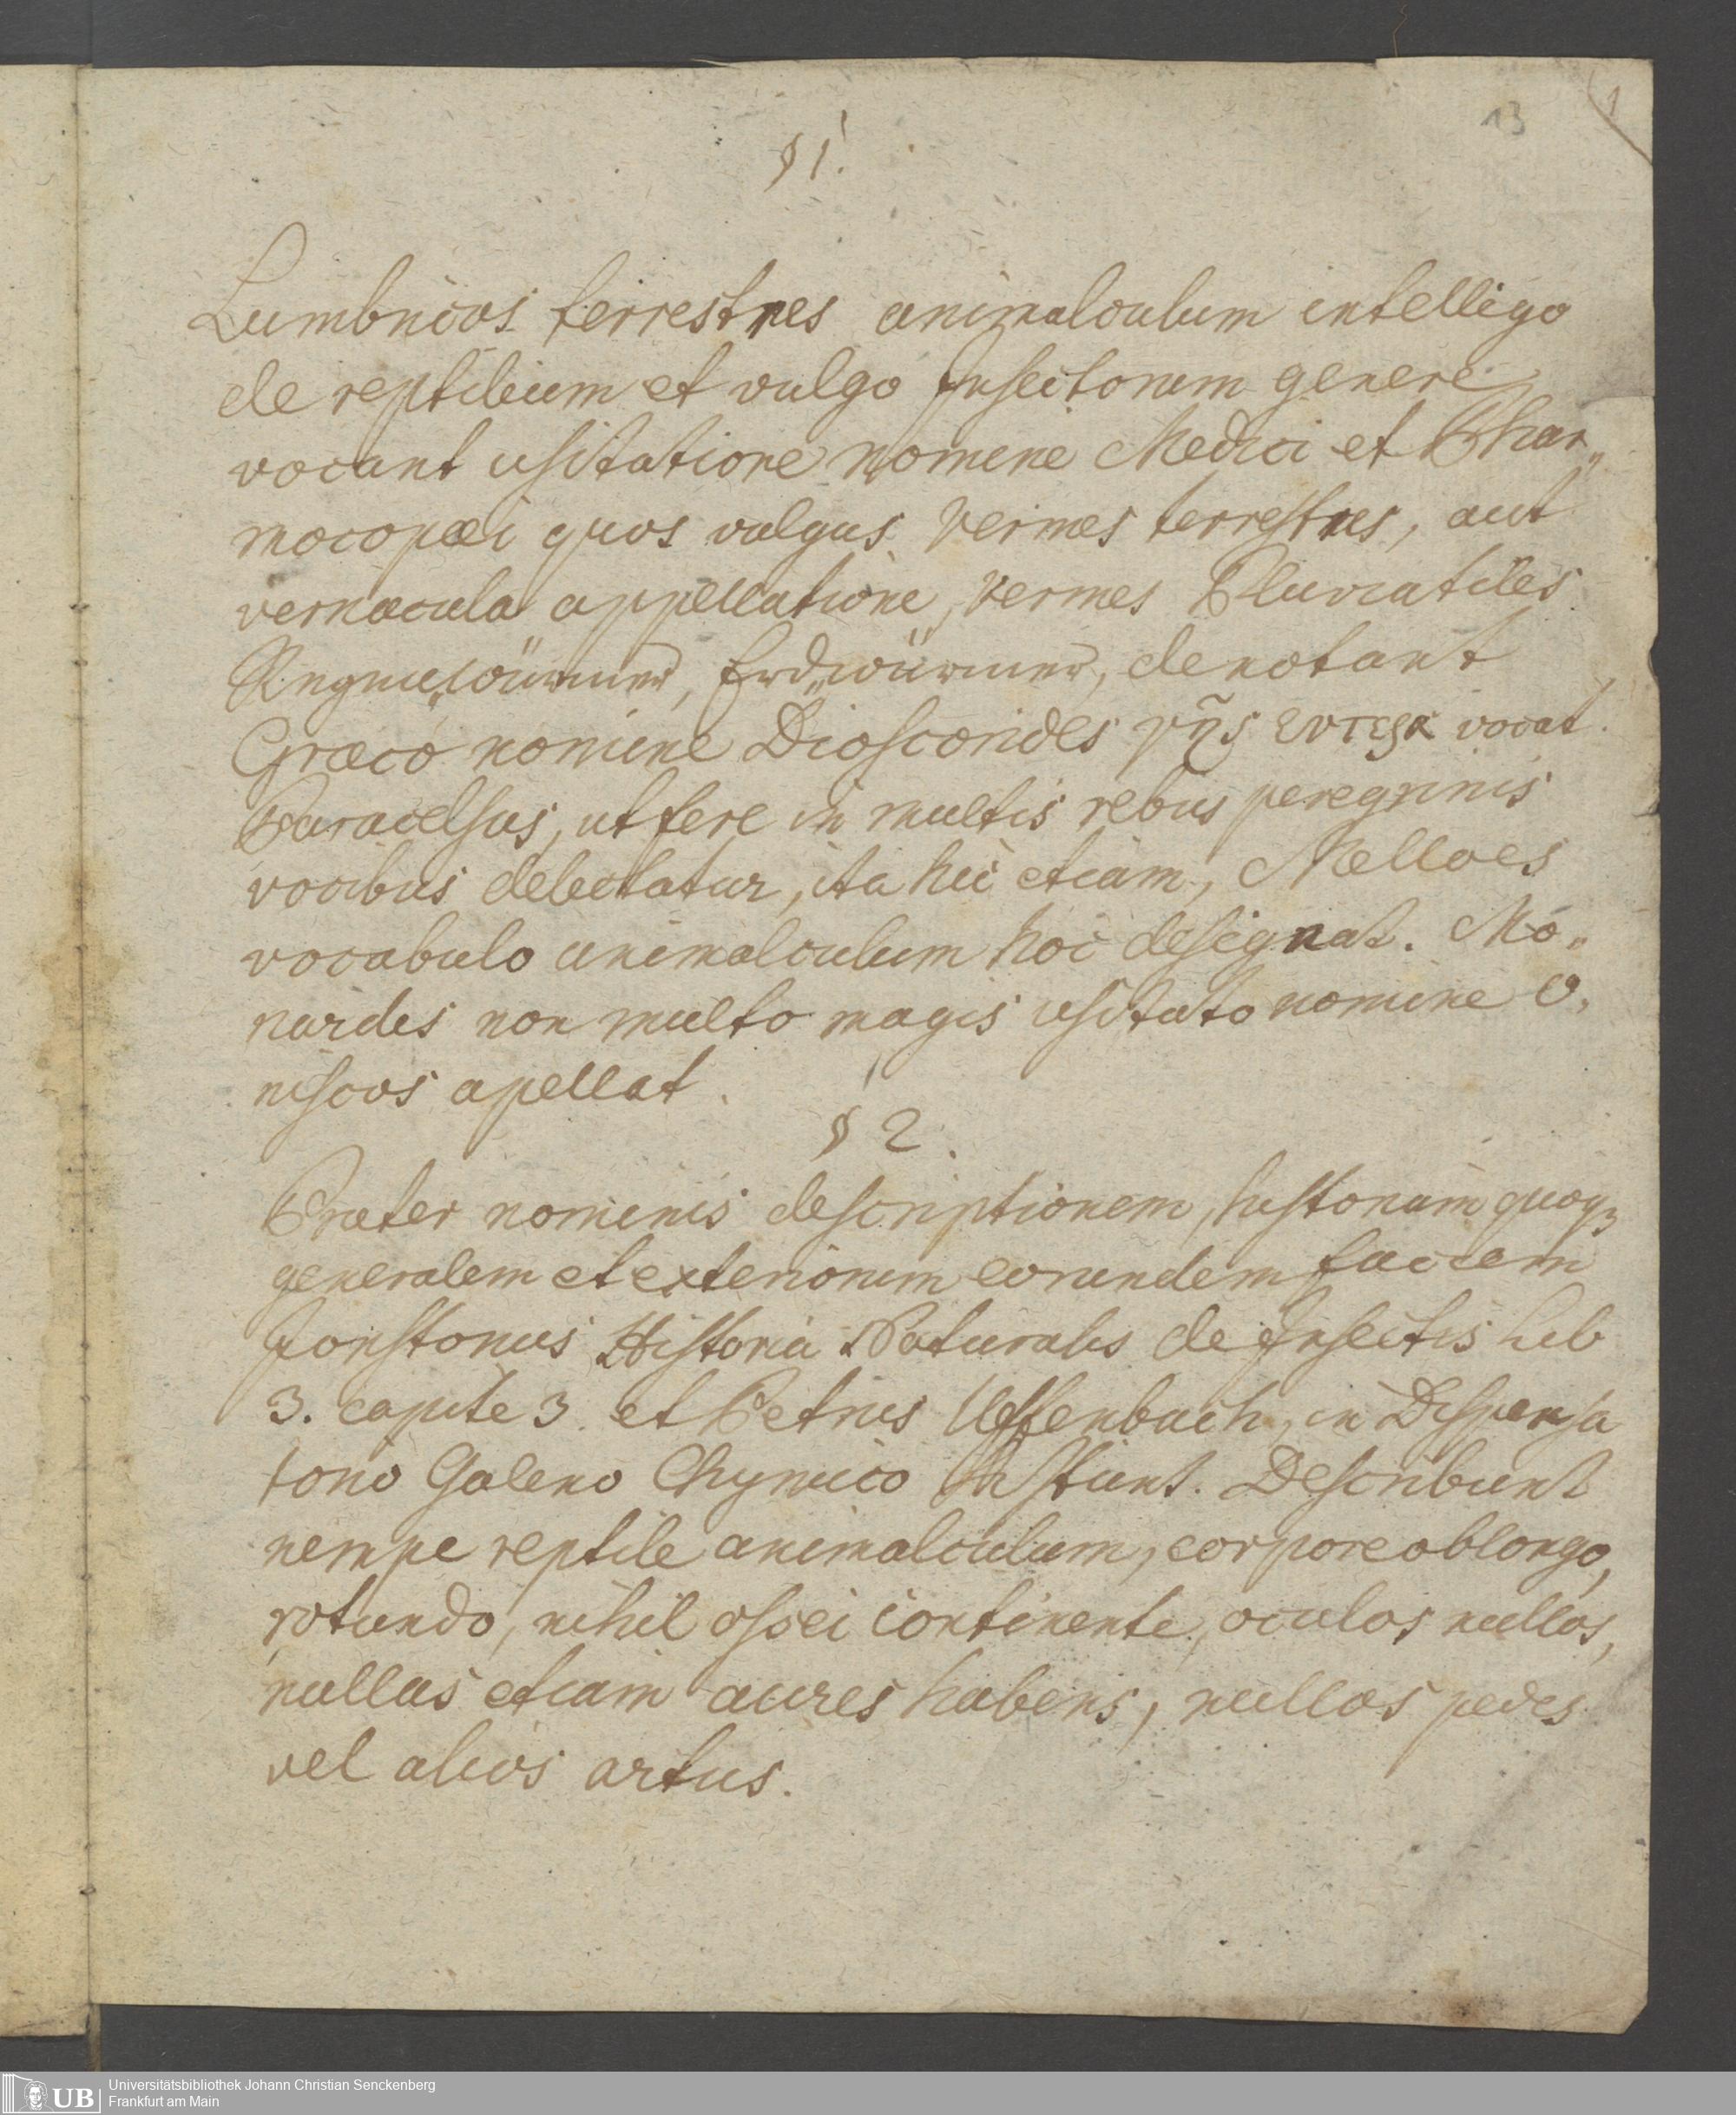 13
1
§ 1.
Lumbricos terrestres animalculum intelligo
de reptilium et vulgo Insectorum genere,
vocant usitatiore nomine Medici et Phar„
macopæi quos vulgus Vermes terrestres, aut
vernacula appellatione, Vermes Pluviatiles
Regenwürmer, Erdwürmer, denotant
Græco nomine Dioscorides γῆς εντερα vocat.
Paracelsus, ut fere in multis rebus peregrinis
vocibus delectatur, ita hic etiam, Melloes
vocabulo animalculum hoc designat. Mo„
nardes non multo magis usitato nomine O„
niscos apellat.
§ 2.
Præter nominis descriptionem, historiam quoq3
generalem et exteriorem eorundem faciem
Jonstonus Historia Naturalis de Insectis Lib
3. capite 3. et Petrus Uffenbach, in Dispensa
torio Galeno Chymico sistunt. Describunt
nempe reptile animalculum, corpore oblongo,
rotundo, nihil ossei continente, oculos nullos,
nullas etiam aures habens, nullos pedes
vel alios artus.
UB
Universitätsbibliothek Johann Christian Senckenberg
Frankfurt am Main